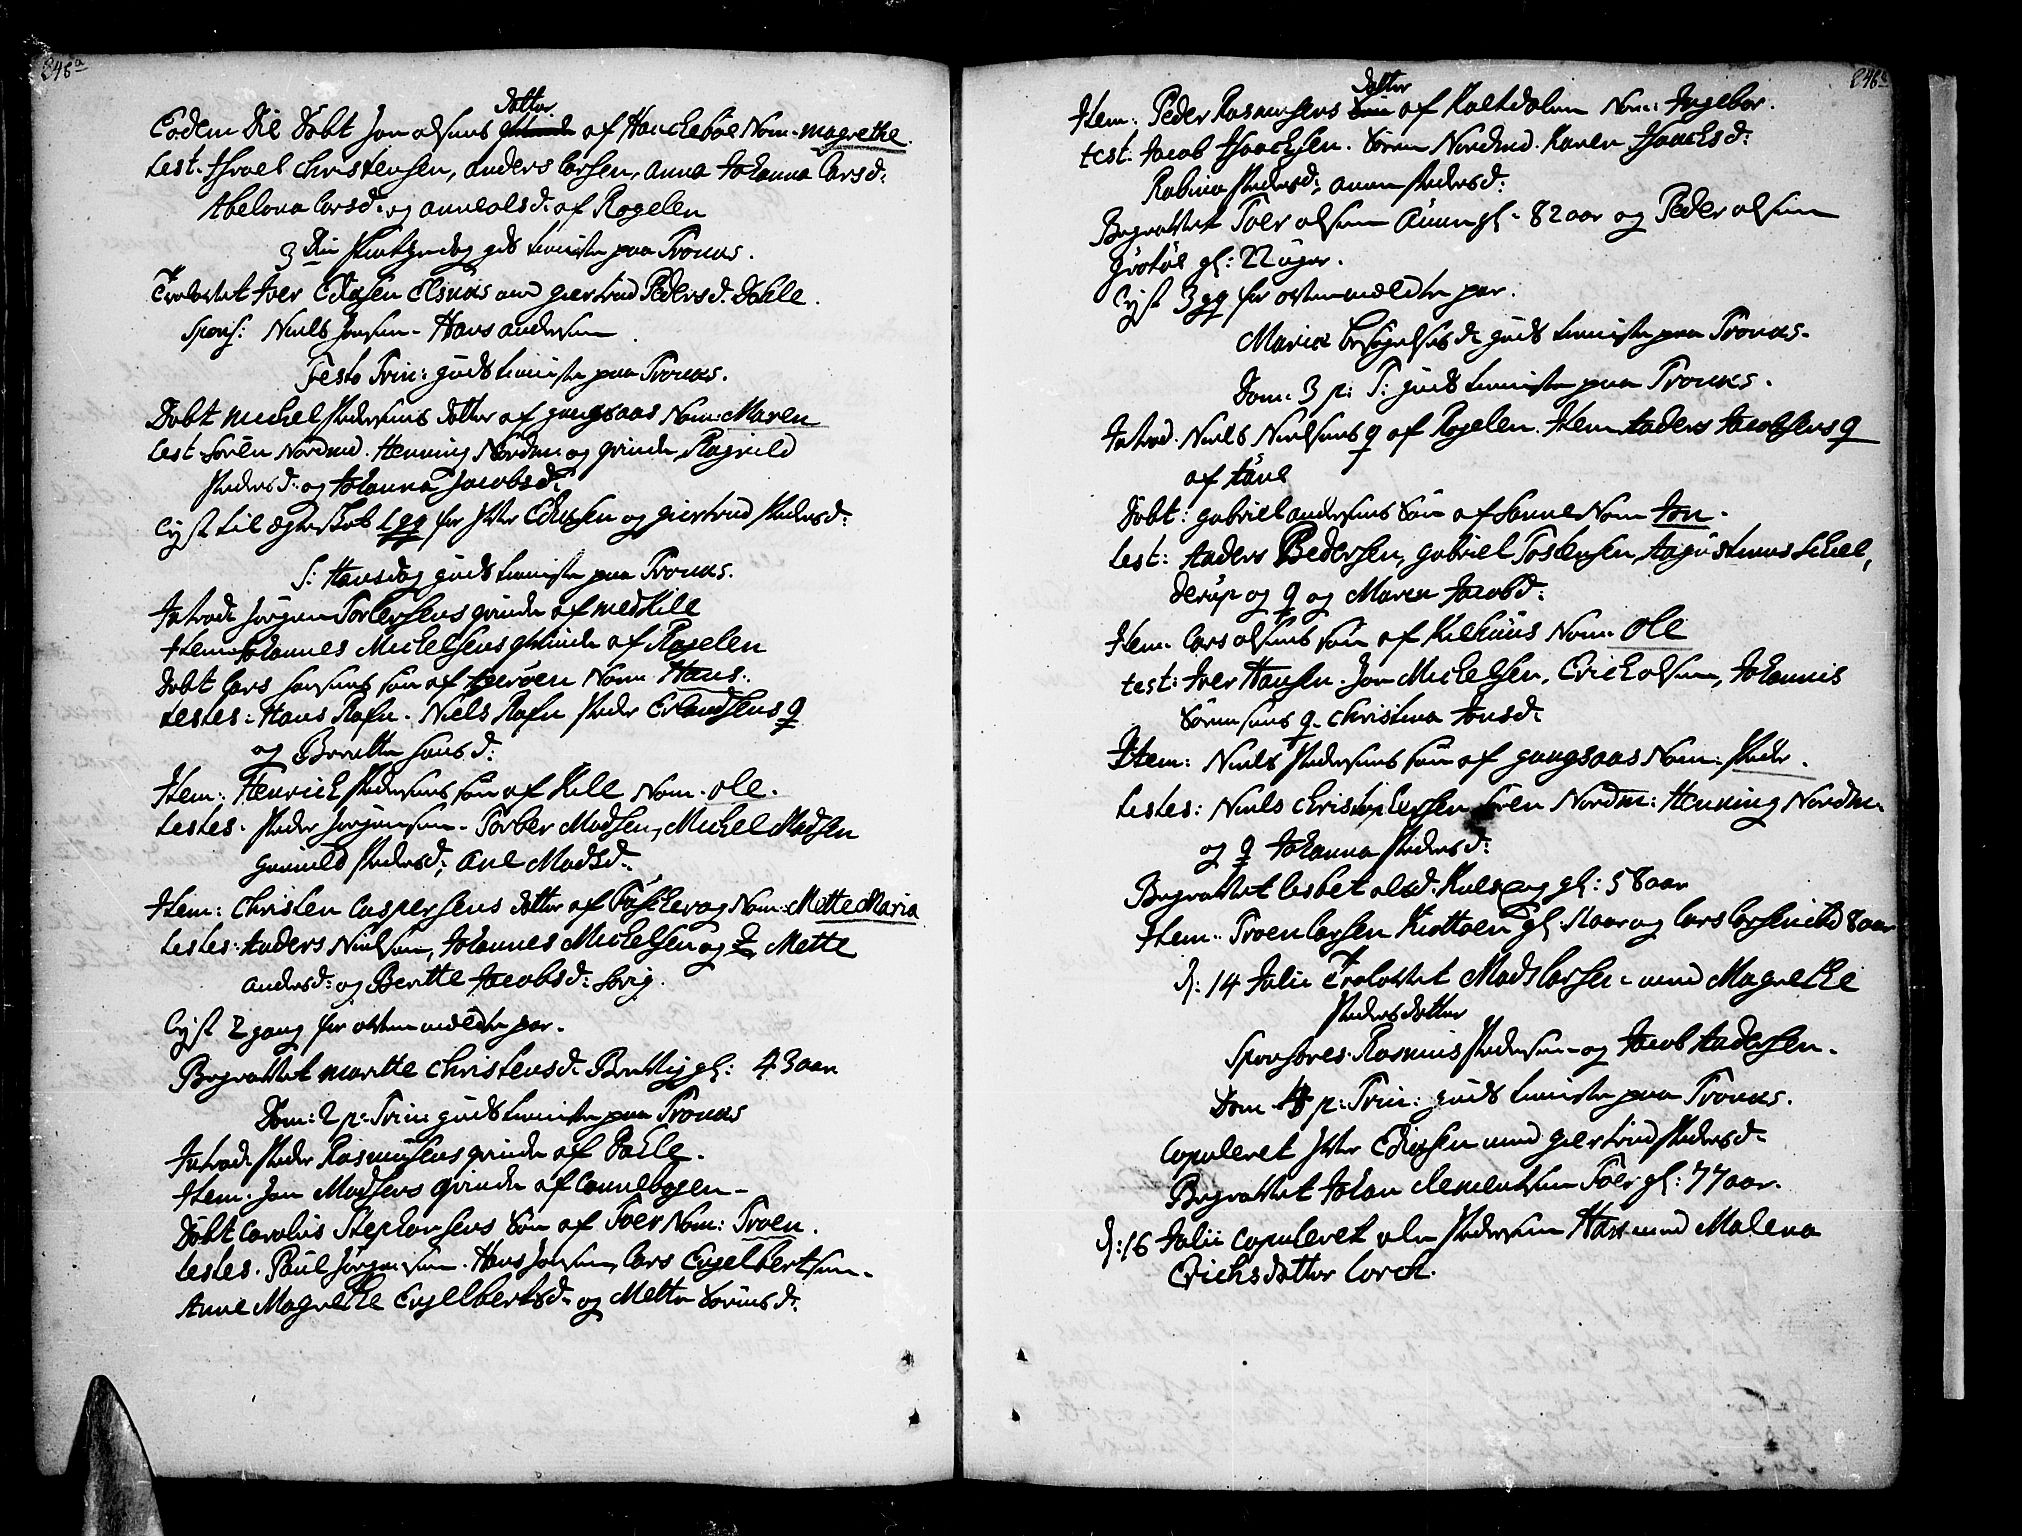 248a
dotter
Eodem Die Døbt Jon olsens af Hanchebøe Nom. magrethe.
test. Israel Christensen, anders larsen, anna Johanna larsd:
Abelona larsd: og anne olsd: af Rogelen
3die Pintzedag guds tieniste paa Tronæs.
Trolovet Iver Edisen Elsnæs med giertrud Pedersd. Dahle.
Spons: Niels Jonsen - Hans andersen
Festo Trin: guds tieniste paa Tronæs.
Døbt michel Pedersens dotter af gangsaas Nom: Maren
test. Søren Nordmd. Henning Nordm: og qvinde, Ragnild
Pedersd: og Johanna Jacobsd:
Lyst til ægteskab 1 gg for Iver Edisen og giertrud Pedersd:
S: Hansdag guds tieniste paa Tronæs.
Introd: Jørgen Torbersens qvinde af medkile
Item Johannes Michelsens qvinde af Rogelen
Døbt lars Jonsens søn af Nom: Hans.
testes: Hans Rafn. Niels Rafn Peder Erlandsens q
og Beritte Jonsd:
Item: Henrich Pedersens søn af Kile Nom. ole.
testes. Peder Jørgensen. Torber Madsen, Michel Madsen
gunnild Pedersd; ane Madsd:
Item: Christen Caspersens dotter af Nom: Mette Maria
testes: Anders Nielsen, Johannes Michelsen og q, Mette
andersd: og Beritte Jacobsd:
Lyst 2 gang for ovenmeldte par.
Begravet maritte Christensd: gl: 43 aar
Dom: 2 p. Trin: guds tieniste paa Tronæs
Introd: Peder Rasmusens qvinde af Dahle.
Item. Jon Madsens qvinde af
Døbt Carolus Stephansens søn af Foer Nom: Troen.
testes. Paul Jørgensen. Hans Jonsen, lars Engelbertsen.
Anne Magrethe Engelbertsd: og Mette Sørensd:
248b
dotter
Item: Peder Rasmusens søn af Kaldalen Nom: Ingebor.
test: Jacob Isaachsen. Søren Nordmd. Karen Isaachsd:
Rabina Pedersd; anne Pedersd:
Begravet Foer olsen gl. 82 aar og Peder olsen
gl: 22 uger.
Lyst 3 gg for ovenmeldte par.
Mariæ besøgelses d: guds tieniste paa Tronæs.
Dom: 3 p: T: guds tieniste paa Tronæs.
Introd. Niels Nielsens q af Rogelen. Item Anders Jacobsens q
af
Døbt: gabriel andersens søn af Sanne Nom Jon.
test: Anders Pedersen, gabriel Tostensen, Augustinus Schel,
derup og q og Maren Jacobsd:
Item. lars olsens søn af Kilhuus Nom. Ole
test: Iver Hansen. Jon Michelsen, Erich olsen, Johannis
Sørensens q. Christina Jonsd:
Item: Niels Pedersens søn af gangsaas Nom: Peder.
testes: Niels Christophersen Søren Nordm: Henning Nordm.
og q Johanna Pedersd:
Begravet lisbet olsd. gl: 58 aar
Item: Troen larsen gl. aar og lars larsen 8 aar
d: 14 Julii Trolovet Mads larsen med Magrethe
Pedersdotter
Sponsores. Rasmus Pedersen og Jacob Andersen.
Dom 4 p: Trin: guds tieniste paa Tronæs.
Copuleret Iver Edisen med giertrud Pedersd:
Begravet Johan Clementsen Foer gl: 77 aar.
d: 16 Julii copuleret ole Pedersen med Malena
Erichsdotter Lorch.